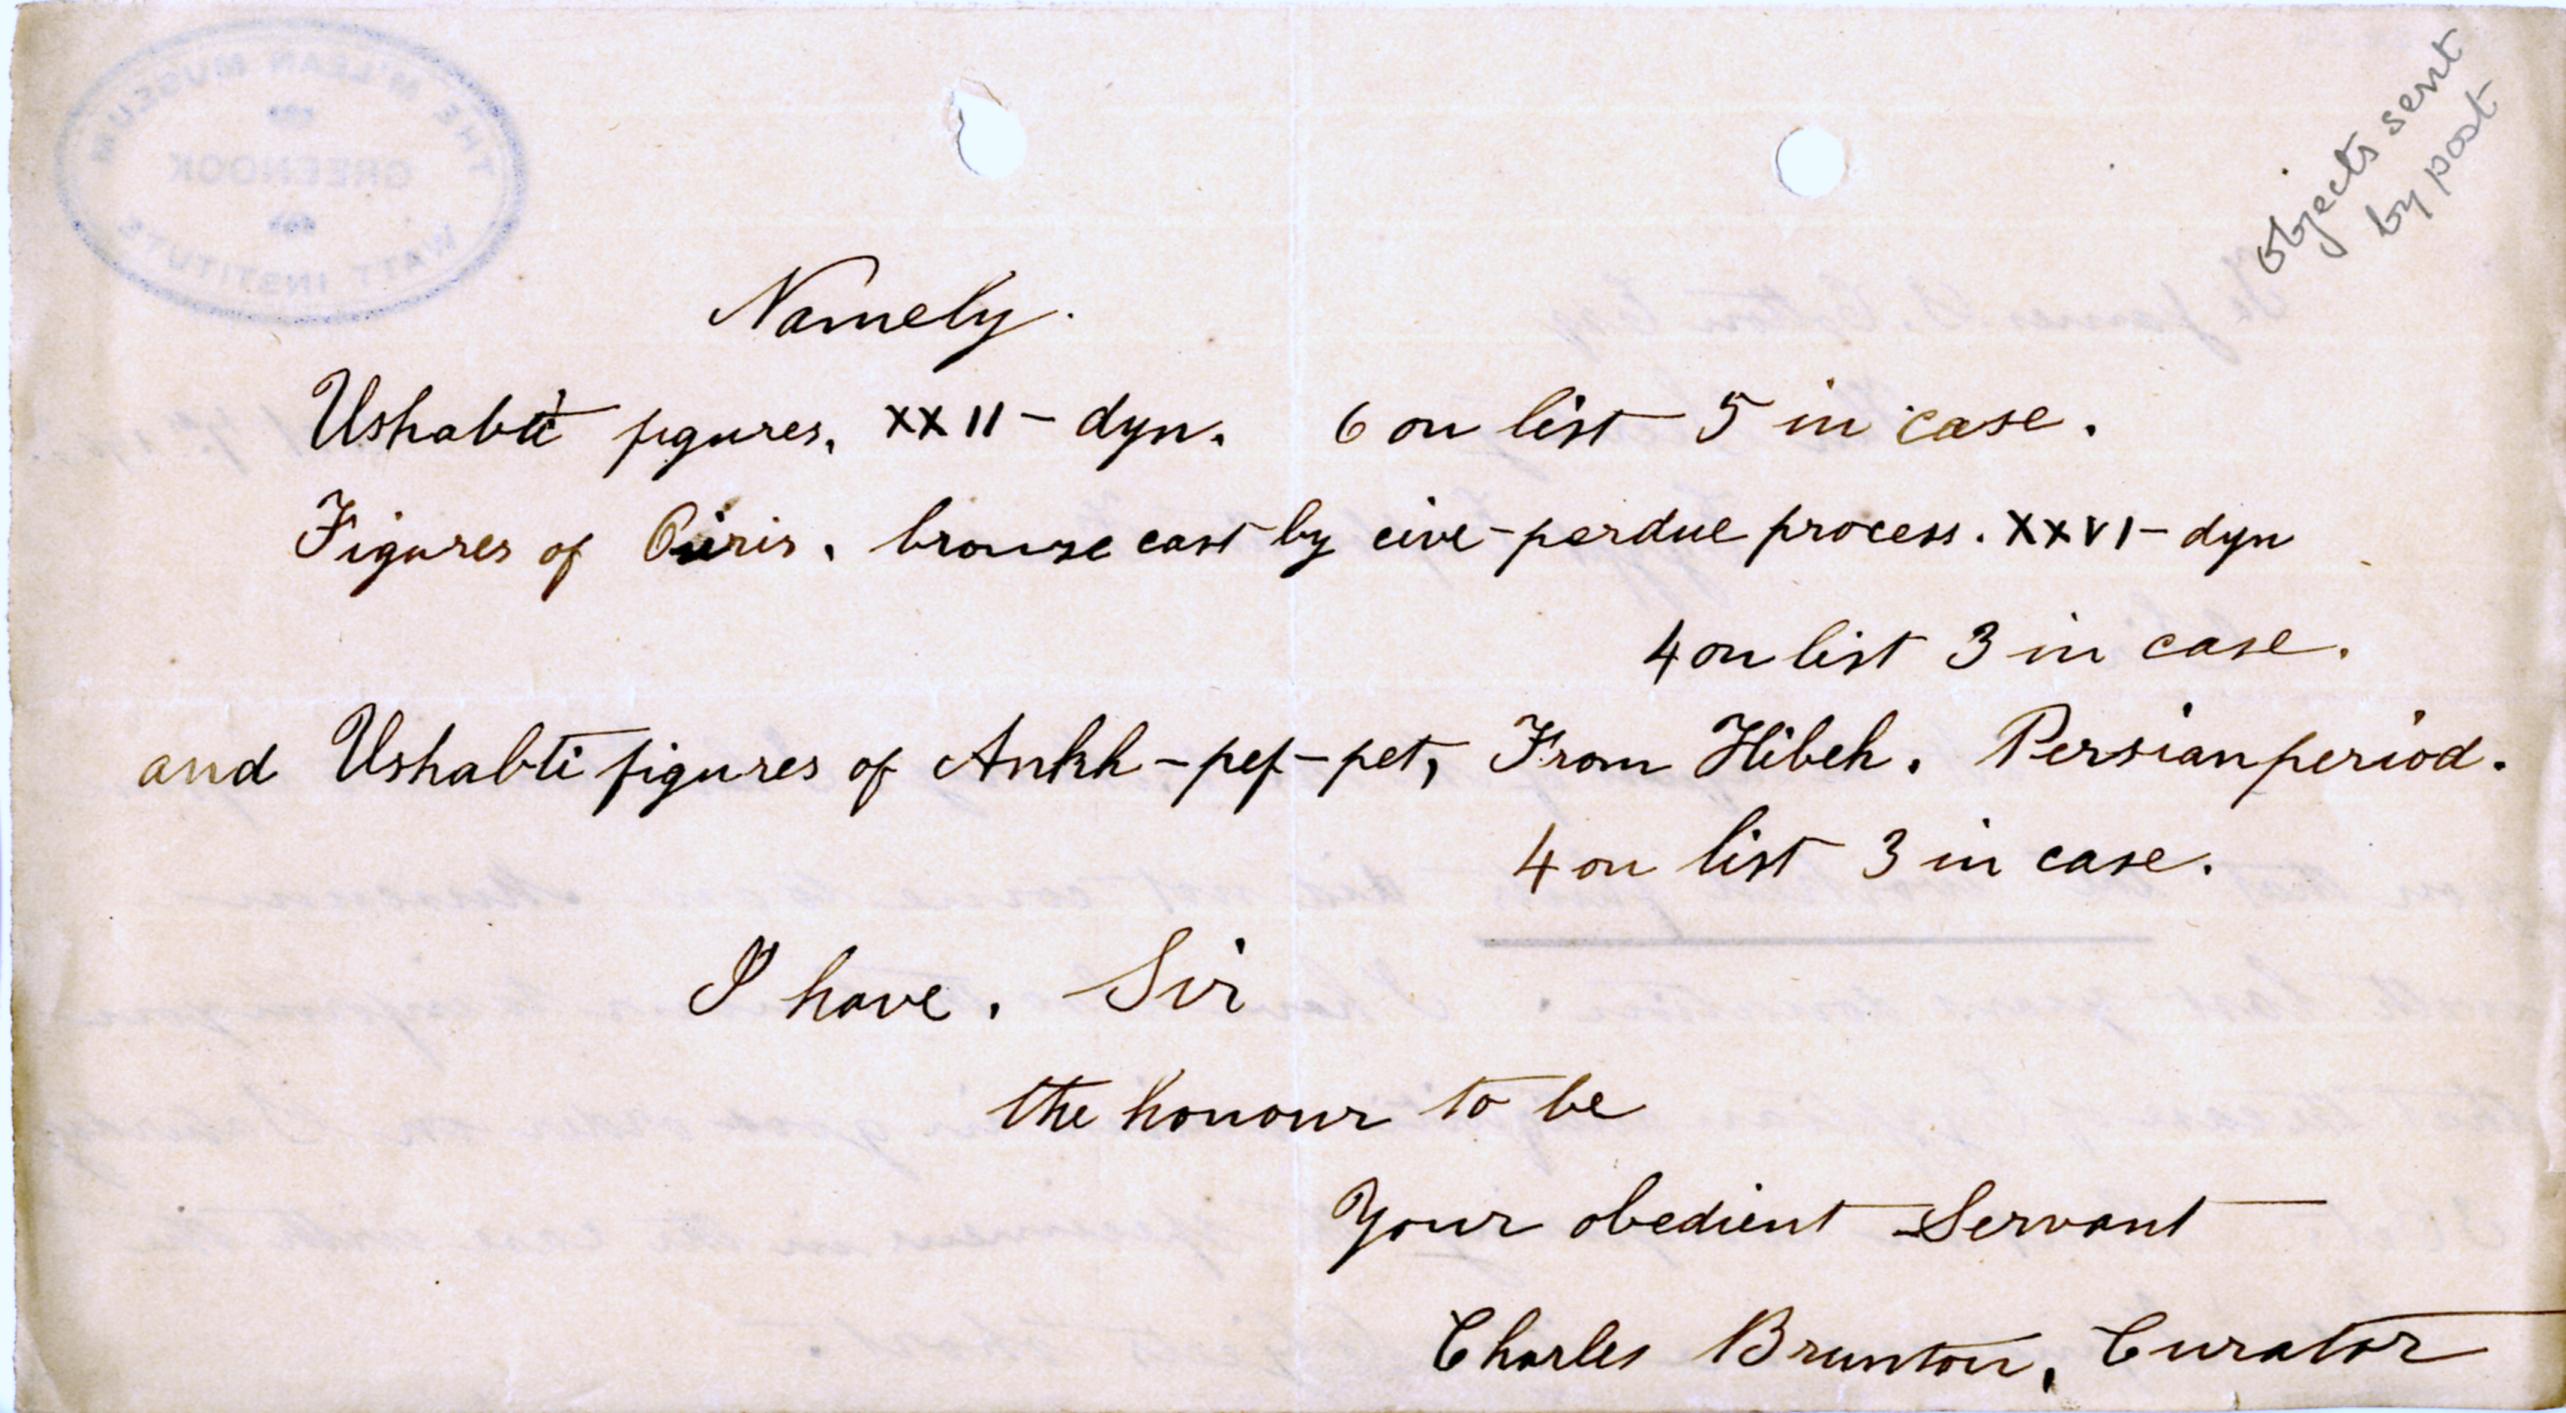 objects sent
by post
THE M'LEAN MUSEUM
GREENOCK
WATT INSTITUTE
Namely.
Ushabti figures. XXII - dyn. 6 on list 5 in case.
Figures of Osiris. bronze cast by cire-perdue process. XXVI - dyn
4 on list 3 in case.
and Ushabti figures of Ankh-pef-pet, From Hibeh. Persian period.
4 on list 3 in case.
I have. Sir
the honour to be
Your obedient Servant
Charles Brunton, Curator